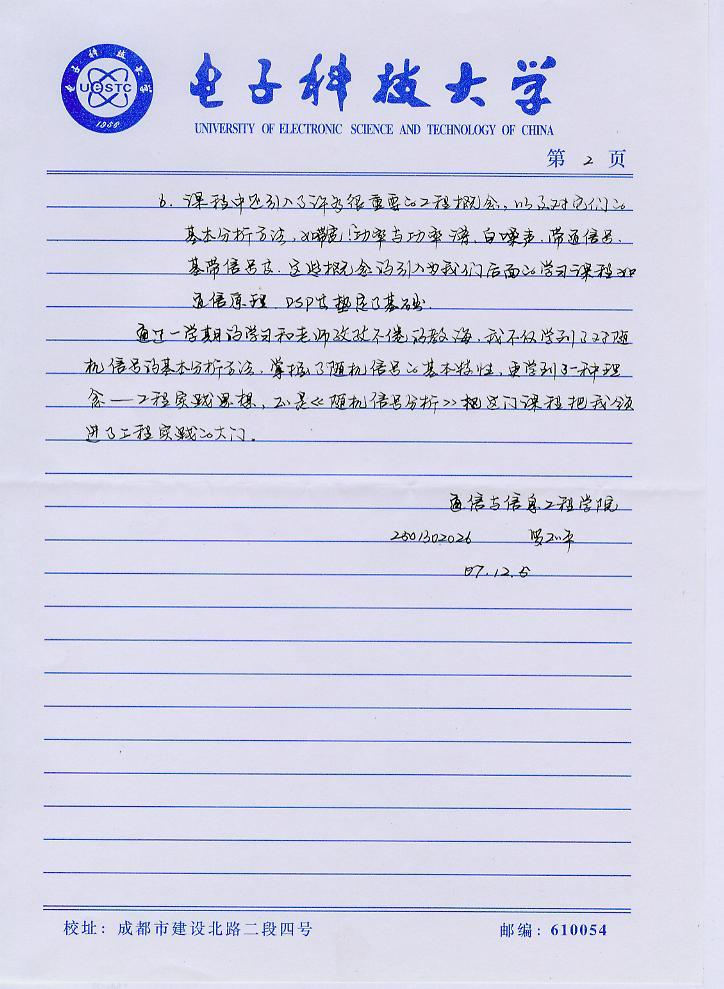 电子科技大学
UESTC
1956
电子科技大学
UNIVERSITY OF ELECTRONIC SCIENCE AND TECHNOLOGY OF CHINA
第 2 页
6. 课程中还引入了许多很重要的工程概念，以及对它们的
基本分析方法，如带宽、功率与功率谱、白噪声、带通信号、
基带信号等。这些概念的引入为我们后面的学习课程如
通信原理、DSP等垫定了基础。
通过一学期的学习和老师孜孜不倦的教诲，我不仅学到了对随
机信号的基本分析方法，掌握了随机信号的基本特性，更学到了一种理
念——工程实践思想，正是《随机信号分析》这门课程把我领
进了工程实践的大门。
通信与信息工程学院
2501302026
07.12.5
校址：成都市建设北路二段四号
邮编：610054